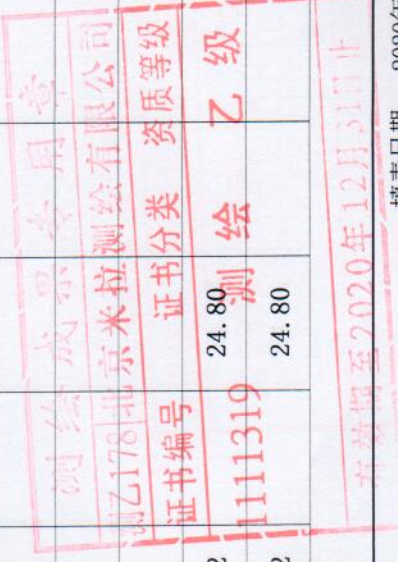 测绘成果专用章
测乙178 北京米拉测绘有限公司
证书编号 证书分类 资质等级
1111319 测绘 乙级
有效期至2020年12月31日止
24.80
24.80
2
2
填表日期 2020年